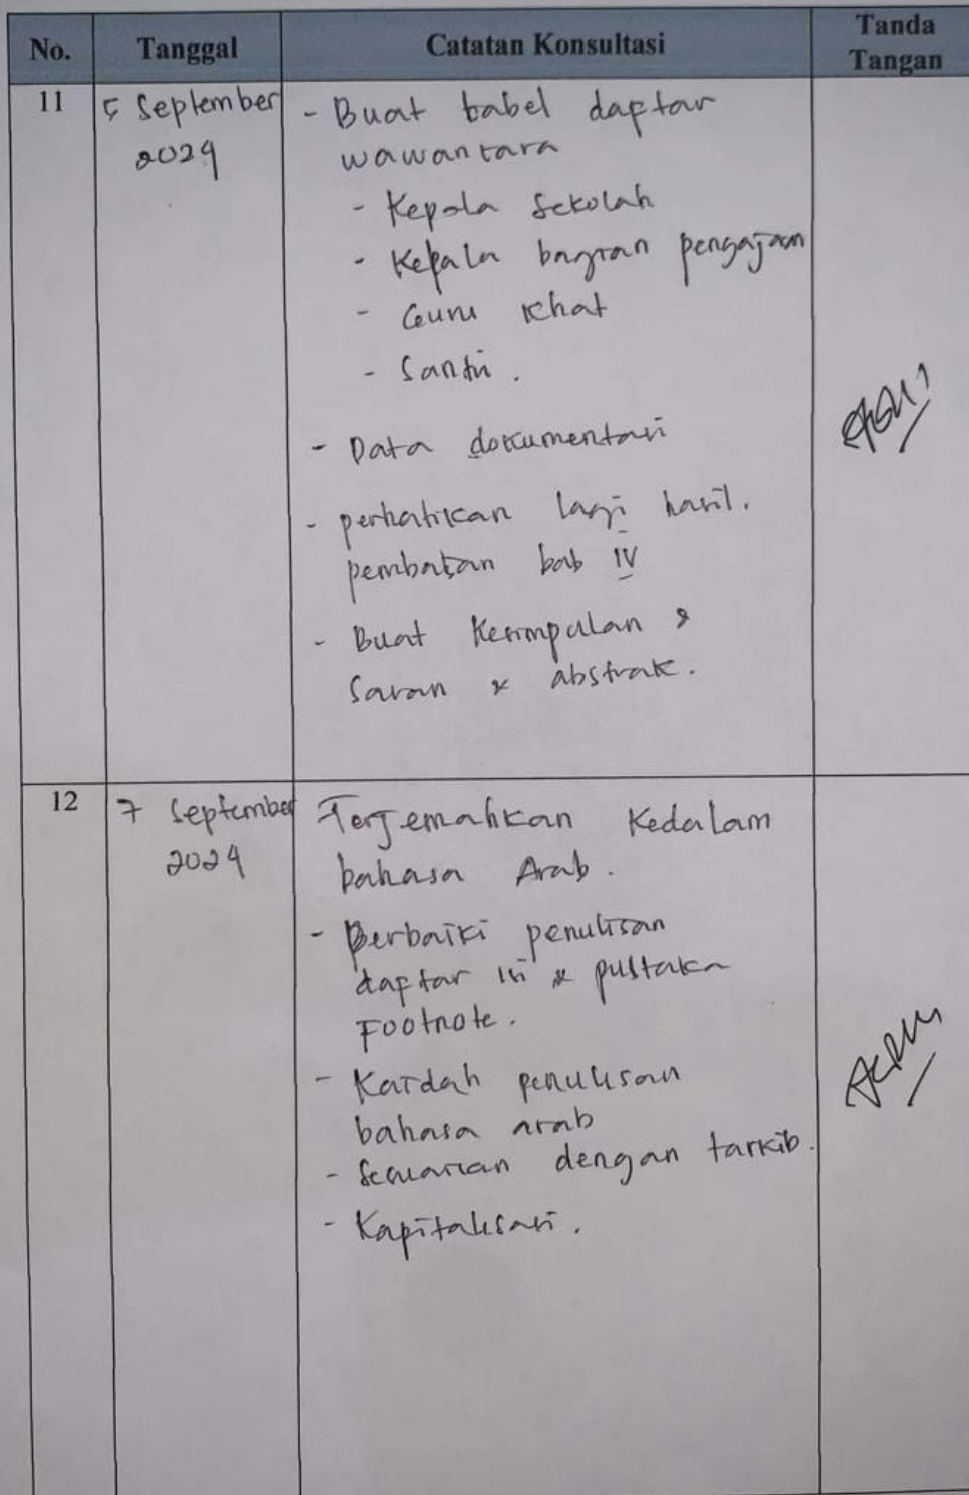 No. Tanggal Catatan Konsultasi Tanda Tangan
11 5 September 2024
- Buat tabel daftar
wawancara
- Kepala Sekolah
- Kepala bagian pengajaan
- Guru Khat
- Santri.
- Data dokumentasi
- perhatikan lagi hasil.
pembatan bab IV
- Buat Kesimpulan &
Saran & abstrak.
12 7 September 2024
Terjemahkan Kedalam
bahasa Arab.
- Berbaiki penulisan
daftar isi & pustaka
Footnote.
- Kaidah penulisan
bahasa arab
- Sesuaikan dengan tarkib.
- Kapitalisasi.